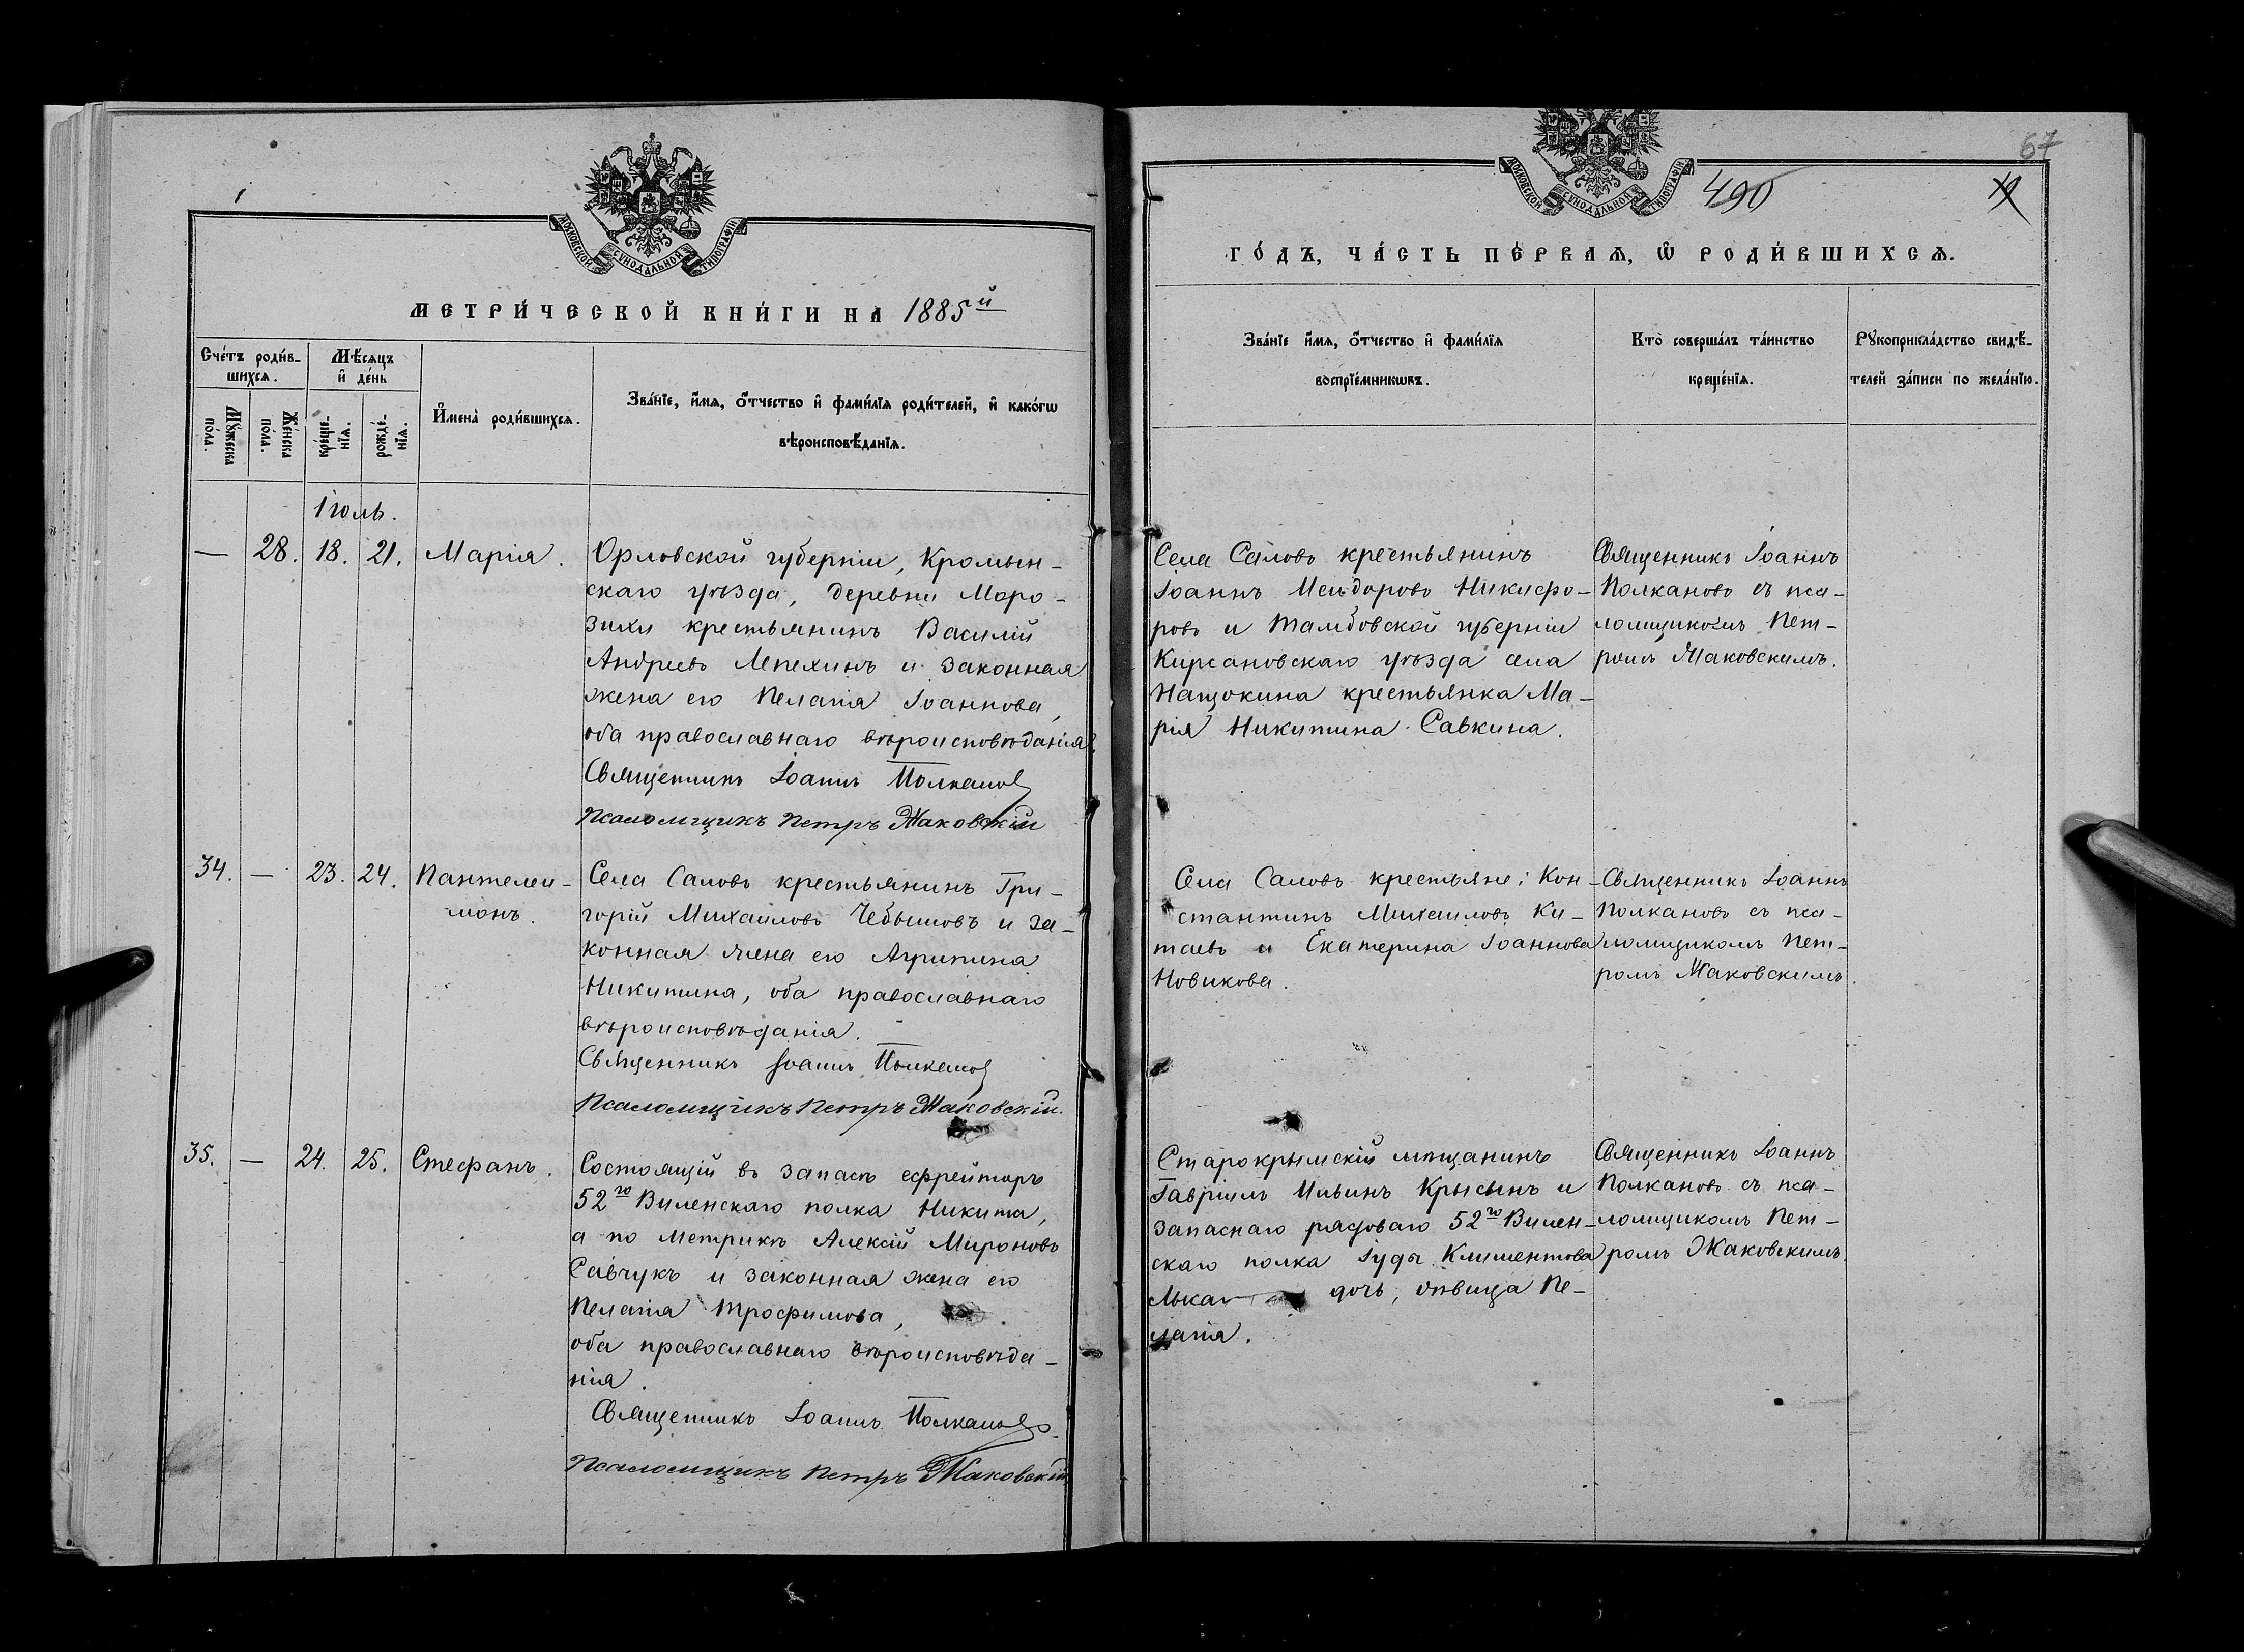 67
490
МОСКОВСКОЙ СѴНОДАЛЬНОЙ ТИПОГРАФІИ
МЕТРИ́ЧЕСКОЙ КНИ́ГИ НА 1885й
Сче́тъ роди́в-
шихсѧ.
Мѣ́сѧцъ
и҆ де́нь
Мꙋ́жеска
по́ла.
Же́нска
по́ла.
креще́-
нїѧ.
рожде́-
нїѧ.
И҆мена̀ роди́вшихсѧ.
Зва́нїе, и҆́мѧ, ѻ҆́тчество и҆ фами́лїѧ роди́телей, и҆ како́гѡ
вѣроисповѣ́данїѧ.
Іюль.
— 28. 18. 21. Марія.
Орловской губерніи, Кромын-
скаго уѣзда, деревни Моро-
зихи крестьянинъ Василій
Андреевъ Лепехинъ и законная
жена его Пелагія Іоаннова,
оба православнаго вѣроисповѣданія.
Священникъ Іоаннъ Полкановъ
Псаломщикъ Петръ Жаковскій
34. — 23. 24. Пантелеи-
монъ.
Села Саловъ крестьянинъ Гри-
горій Михаиловъ Чебышовъ и за-
конная жена его Агрипина
Никитина, оба православнаго
вѣроисповѣданія.
Священникъ Іоаннъ Полкановъ
Псаломщикъ Петръ Жаковскій.
35. — 24. 25. Стефанъ.
Состоящій въ запасѣ ефрейторъ
52го Виленскаго полка Никита,
а по метрикѣ Алексій Мироновъ
Савчукъ и законная жена его
Пелагія Трофимова,
оба православнаго вѣроисповѣда-
нія.
Священникъ Іоаннъ Полкановъ
Псаломщикъ Петръ Жаковскій
МОСКОВСКОЙ СѴНОДАЛЬНОЙ ТИПОГРАФІИ
ГО́ДЪ, ЧА́СТЬ ПЕ́РВАѦ, Ѡ҆ РОДИ́ВШИХСѦ.
Зва́нїе и҆́мѧ, ѻ҆́тчество и҆ фами́лїѧ
воспрїе́мникѡвъ.
Кто̀ соверша́лъ та́инство
креще́нїѧ.
Рꙋкоприкла́дство свидѣ́-
телей за́писи по жела́нїю.
Села Саловъ крестьянинъ
Іоаннъ Меѵдоровъ Никифо-
ровъ и Тамбовской губерніи
Кирсановскаго уѣзда села
Нащокина крестьянка Ма-
рія Никитина Савкина.
Священникъ Іоаннъ
Полкановъ съ пса-
ломщикомъ Пет-
ромъ Жаковскимъ.
Села Саловъ крестьяне: Кон-
стантинъ Михаиловъ Ки-
таевъ и Екатерина Іоаннова
Новикова.
Священникъ Іоаннъ
Полкановъ съ пса-
ломщикомъ Пет-
ромъ Жаковскимъ.
Старокрымскій мѣщанинъ
Гавріилъ Ильинъ Крысынъ и
запаснаго рядоваго 52го Вилен-
скаго полка Іуды Климентова
дочь, дѣвица Пе-
лагія.
Священникъ Іоаннъ
Полкановъ съ пса-
ломщикомъ Пет-
ромъ Жаковскимъ